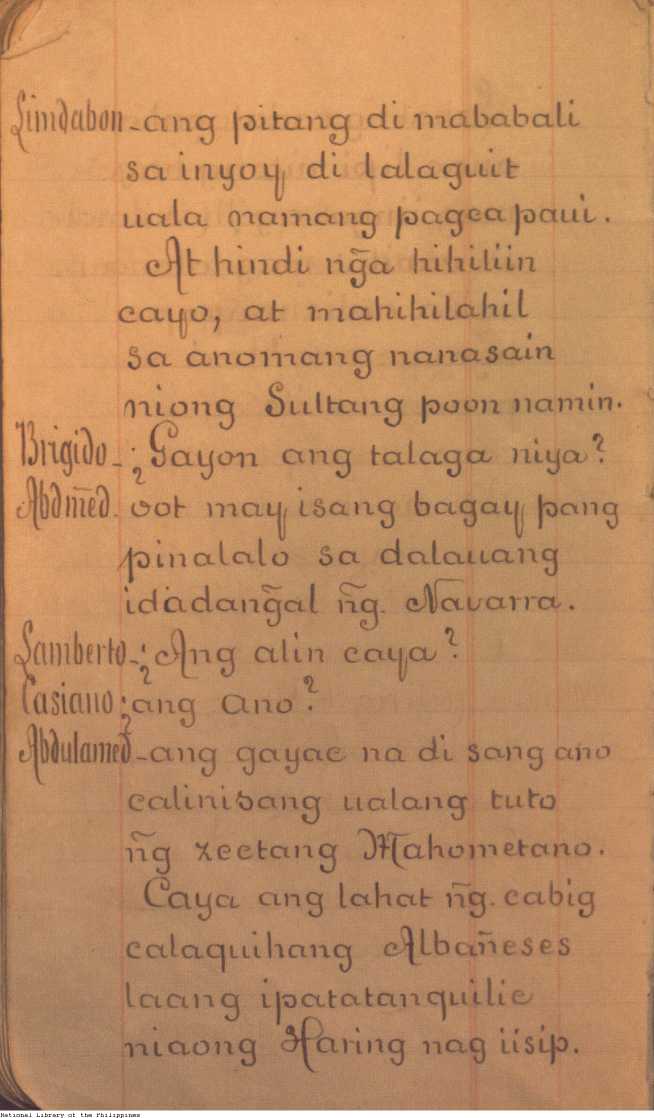 Limdabon - ang pitang di mababali
sa inyoy di lalaguit
uala namang pagcapaui.
At hindi ng̃a hihiliin
cayo, at mahihilahil
sa anomang nanasain
niong Sultang poon namin.
Brigido - ¿Gayon ang talaga niya?
Abdmed. oot may isang bagay pang
pinalalo sa dalauang
idadang̃al ñg. Navarra.
Lamberto - ¿Ang alin caya?
Casiano ¿ang ano?
Abdulamed - ang gayac na di sang ano
calinisang ualang tuto
ñg zectang Mahometano.
Caya ang lahat ñg. cabig
calaquihang Albañeses
laang ipatatanquilic
niaong Haring nag iisip.
National Library of the Philippines